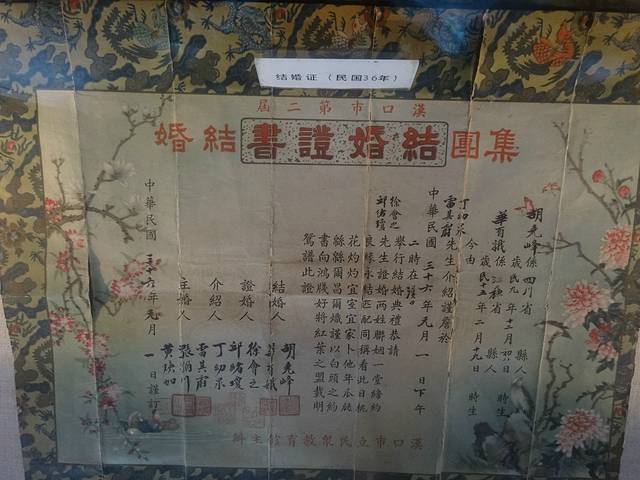 结婚证（民国36年）
漢口市第二屆
集團結婚證書結婚
胡先峰係四川省 縣人
歲民九年十二月初日 時生
係 省 縣人
歲民十五年二月九日 時生
今由
先生介紹謹詹於
中華民國三十六年元月一日下午
二時在漢口
舉行結婚典禮恭請
徐會之
邱緒瓊
先生證婚兩姓聯姻一堂締約
良緣永結匹配同稱看此日桃
花灼灼宜室宜家卜他年瓜瓞
綿綿爾昌爾熾謹以白頭之約
書向鴻箋好將紅葉之盟載明
鴛譜此證
結婚人 胡先峰
證婚人 徐會之 邱緒瓊
介紹人
主婚人
中華民國三十六年元月一日謹訂
漢口市立民眾教育館主辦